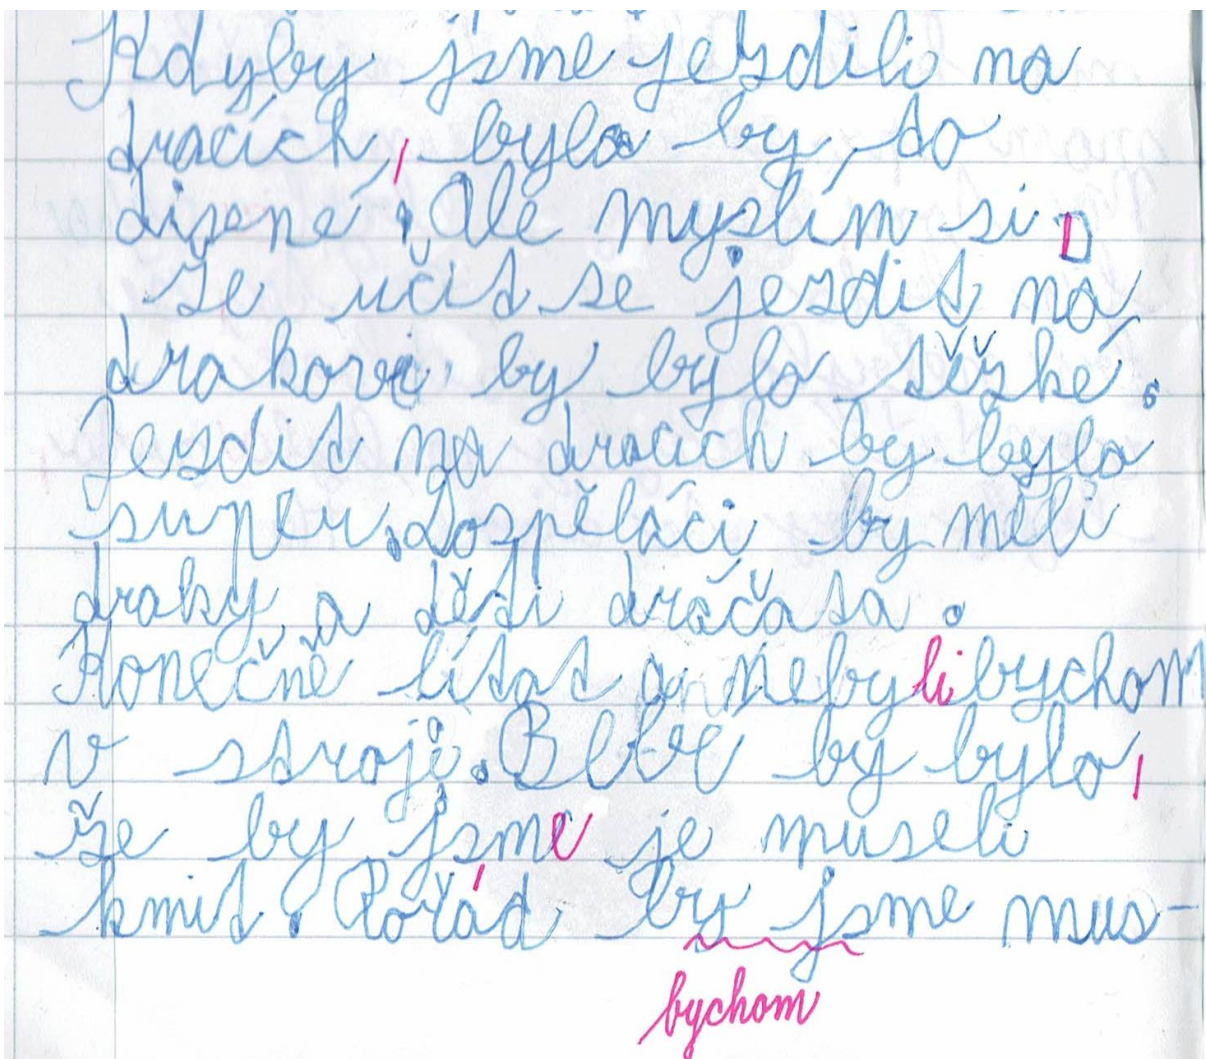 Kdyby jsme jezdili na
dracích, bylo by to
disené. Ale myslím si,
že učit se jezdit na
drakovi by bylo těžké.
Jezdit na dracích by bylo
super. Dospěláci by měli
draky a děti dráčata.
Konečně lítat a nebyli bychom
v stroji. Blbé by bylo,
že by jsme je museli
krmit. Pořád by jsme mus-
bychom